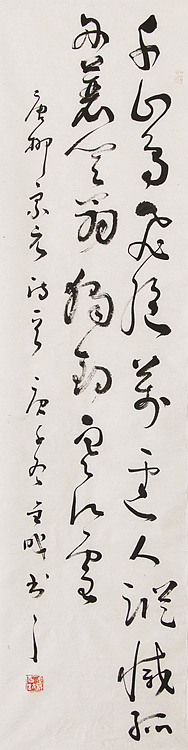 千山鳥飛絕萬逕人蹤滅孤
舟蓑笠翁獨釣寒江雪
唐柳宗元詩 庚 书